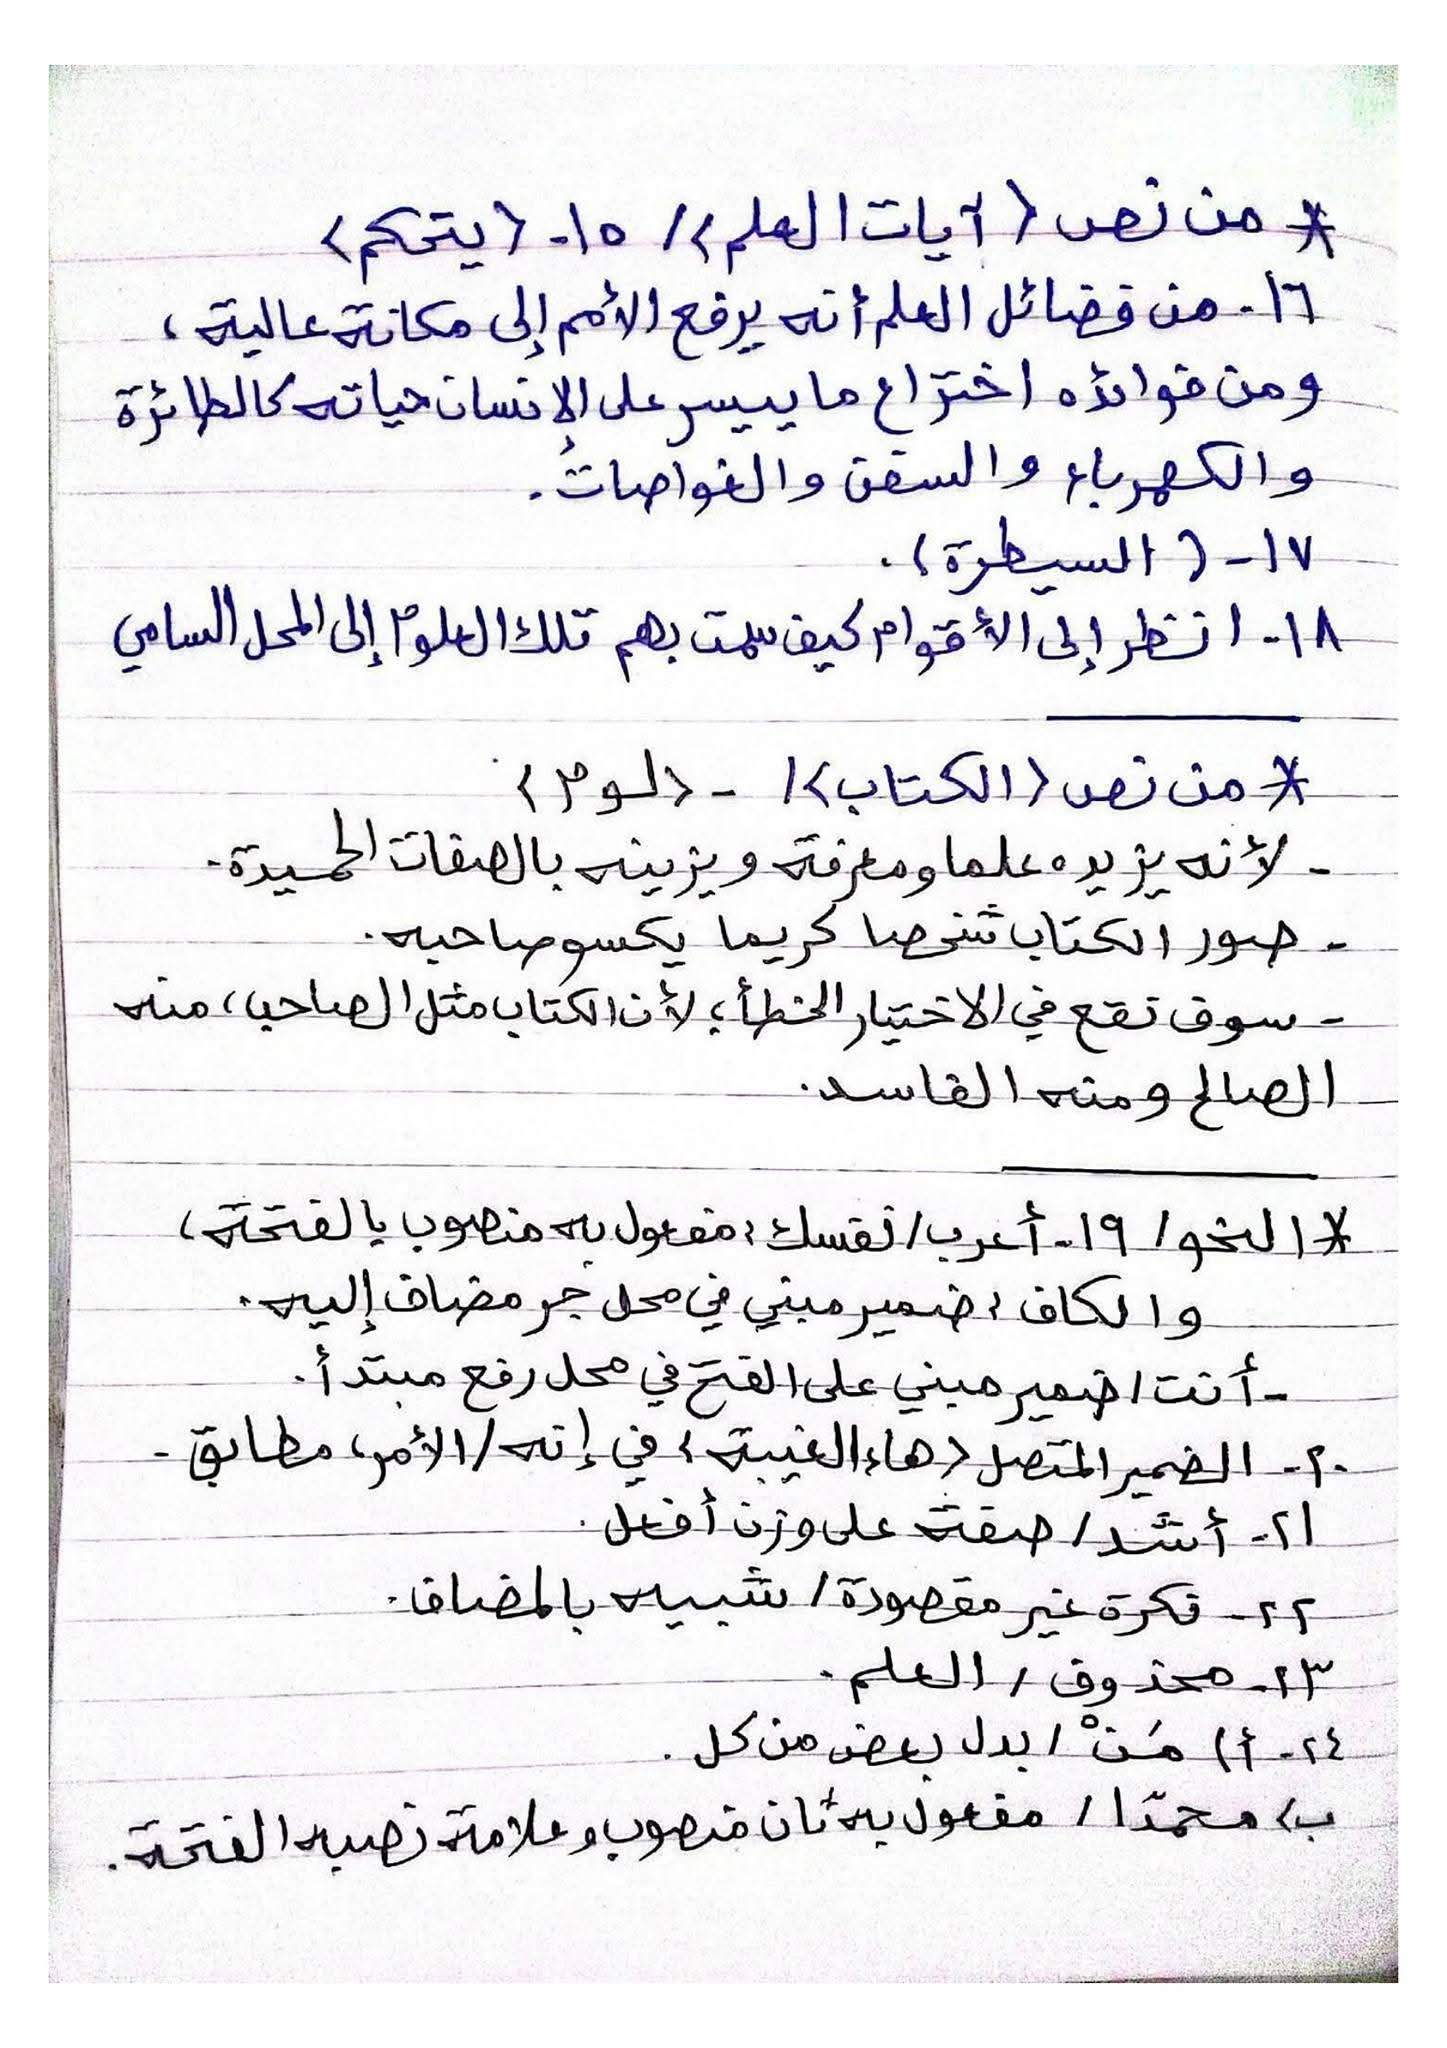 * من نص (آيات العلم) / ١٥- (يتحكم)
١٦- من فضائل العلم أنه يرفع الأمم إلى مكانة عالية،
ومن فوائده اختراع ما ييسر على الإنسان حياته كالطائرة
والكهرباء والسفن والغواصات.
١٧- (السيطرة).
١٨- انظر إلى الأقوام كيف سمت بهم تلك العلوم إلى المحل السامي
* من نص (الكتاب) / - (لوم)
- لأنه يزيده علما ومعرفة ويزينه بالصفات الحميدة.
- صور الكتاب شخصا كريما يكسو صاحبه.
- سوف تقع في الاختيار الخطأ؛ لأن الكتاب مثل الصاحب، منه
الصالح ومنه الفاسد.
* النحو / ١٩- أعرب / نفسك: مفعول به منصوب بالفتحة،
والكاف: ضمير مبني في محل جر مضاف إليه.
- أنت / ضمير مبني على الفتح في محل رفع مبتدأ.
٢٠- الضمير المتصل (هاء الغيبة) في إنه / الأمر، مطابق -
٢١- أشد / صفة على وزن أفعل.
٢٢- نكرة غير مقصودة / شبيه بالمضاف.
٢٣- محذوف / العلم.
٢٤- أ) مَنْ / بدل بعض من كل.
ب) محمدًا / مفعول به ثان منصوب وعلامة نصبه الفتحة.